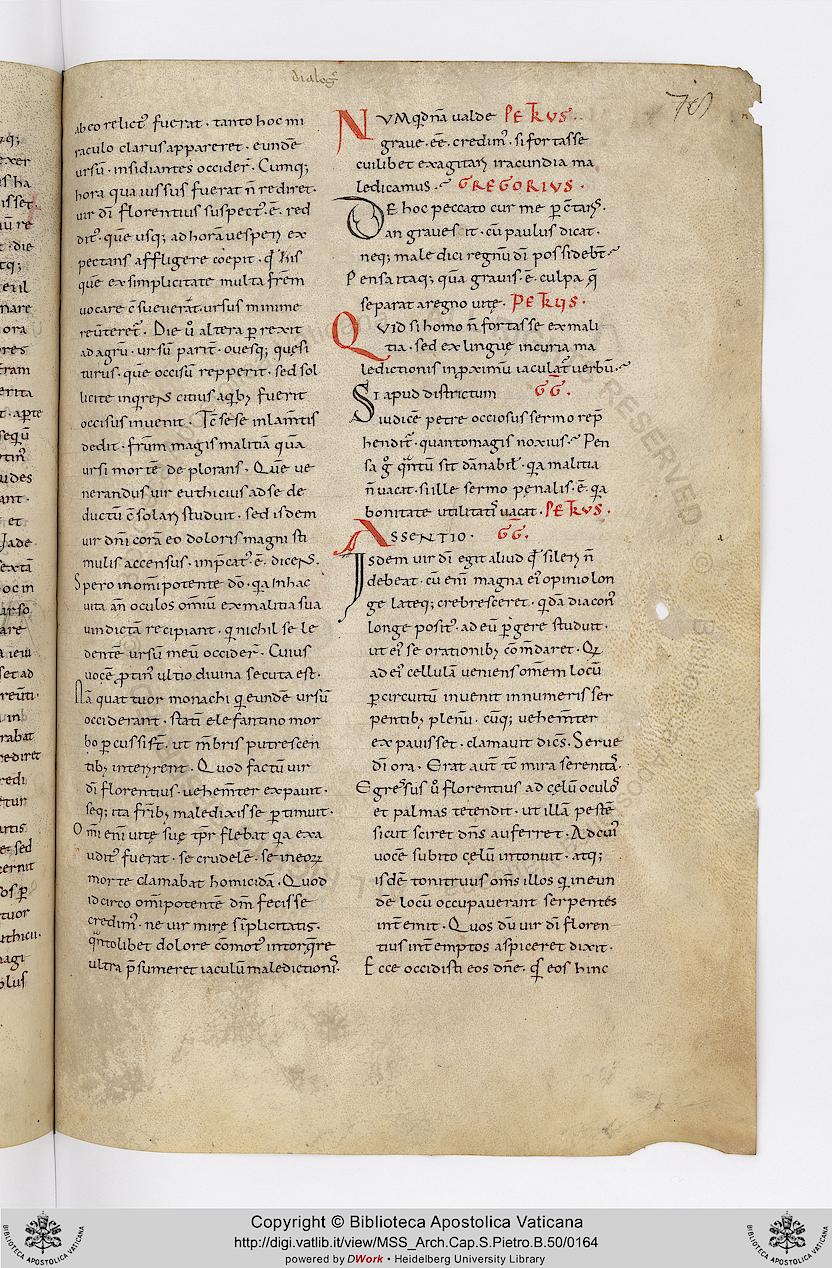 dialogꝰ
78
ab eo relictꝰ fuerat · tanto hoc mi
raculo clarus appareret · eundē
ursū · insidiantes occiderꝰ. Cumq;
hora qua iussus fuerat n̄ rediret ·
vir di̅ florentius suspectꝰ · ē · red
ditꝰ · que usq; ad horā vesperꝝ ex
pectans affligere coepit · qđ his
que ex simplicitate multa frēm
vocare c̄sueverat · ursus minime
reūteretꝰ. Die ũ altera p̱rexit
ad agrū · ursum parit̄ · ovesq; quęsi
turus · que occisū repperit · sed sol
licite inqrens citius a qb; fuerit
occisus invenit · Tc̄ sese in lam̄tis
dedit · frūm magis malitiā quā
ursi mortē deplorans · Que ve
nerandus vir euthicius ad se de
ductū c̄solarꝝ studuit · sed isdem
vir dnī corā eo doloris magni sti
mulis accensus · imp̄catꝰ · ē · dicens ·
Spero in om̄ipotente do̅ · qa in hac
vita an̄ oculos om̄iū ex malitia sua
vindictā recipiant · q nichil se le
dentē ursum meū occiderꝰ · Cuius
vocē p̱tinꝰ ultio divina secuta est ·
Nā quattuor monachi q eundē ursū
occiderant · statī elefantino mor
bo p̱cussi sꝉ · ut m̄bris putrescen
tib; interirent · Quod factū vir
di̅ florentius · vehem̄ter expavit ·
seq; ita frib; maledixisse p̱timuit ·
Om̄i enī vitę suę tp̄r flebat qa exa
uditꝰ fuerat · se crudelē · se in eoꝝ
morte clamabat homicidā · Quod
idcirco om̄ipotentē dm̄ fecisse
credimꝰ · ne vir mire si̅plicitatis ·
qn̄tolibet dolore cōmotꝰ intorqre
ultra p̄sumeret iaculū maledictionis ·
NUMQdnā valde PETRVS ·
grave · eē · credimꝰ · si fortasse
cuilibet exagitati iracundia ma
ledicamus · GREGORIVS ·
De hoc peccato cur me p̱ c̄taris ·
an grave sit · cū paulus dicat ·
neq; maledici regnū di̅ possidebt ·
Pensa itaq; quā gravis · ē · culpa q̄
separat a regno vitę · PETRVS ·
Quid si homo n̄ fortasse ex mali
tia · sed ex linguę incuria ma
ledictionis in p̱ximū iaculat̄ verbū ·
Si apud districtum GḠ ·
iudicē petre occiosus sermo rep̄
henditꝰ · quantomagis noxius · Pen
sa g̊ qn̄tū sit dānabilꝰ · qa malitia
n̄ vacat · si ille sermo pęnalis · ē · qa
bonitate utilitatis vacat · PETRVS ·
ASSENTIO · GḠ ·
Isdem vir di̅ egit aliud qđ sileri n̄
debeat · cū enī magna eiꝰ opinio lon
ge lateq; crebresceret · qdā diaconꝰ
longe positꝰ · ad eū p̱gere studuit ·
ut eiꝰ se orationib; com̄daret · Q
ad eiꝰ cellulā veniens om̄em locū
p̱ circuitū invenit innumeris ser
pentib; plenū · cūq; vehem̄ter
expavisset · clamavit dicēs · Serve
di̅ ora · Erat aut̄ tc̄ mira serenitas ·
Egressus ũ florentius ad cęlū oculos
et palmas tetendit · ut illā pestē
sicut sciret dn̄s auferret · Ad cuiꝰ
vocē subito cęlū intonuit · atq;
isdē tonitruus om̄s illos q in eun
dē locū occupaverant serpentes
int̄emit · Quos dū vir di̅ floren
tius int̄emptos aspiceret dixit ·
Ecce occidisti eos dn̄e · qs eos hinc
Copyright © Biblioteca Apostolica Vaticana
http://digi.vatlib.it/view/MSS_Arch.Cap.S.Pietro.B.50/0164
powered by DWork • Heidelberg University Library
BIBLIOTECA APOSTOLICA VATICANA
BIBLIOTECA APOSTOLICA VATICANA